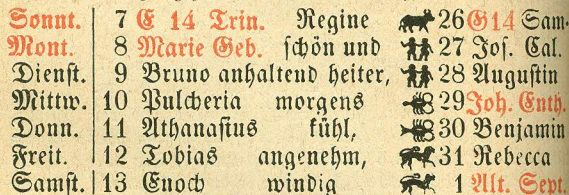 Sonnt. 7 E 14 Trin. Regine 26 G14 Sam-
Mont. 8 Marie Geb. schön und 27 Jos. Cal.
Dienst. 9 Bruno anhaltend heiter, 28 Augustin
Mittw. 10 Pulcheria morgens 29 Joh. Enth.
Donn. 11 Athanasius kühl, 30 Benjamin
Freit. 12 Tobias angenehm, 31 Rebecca
Samst. 13 Enoch windig 1 Alt. Sept.